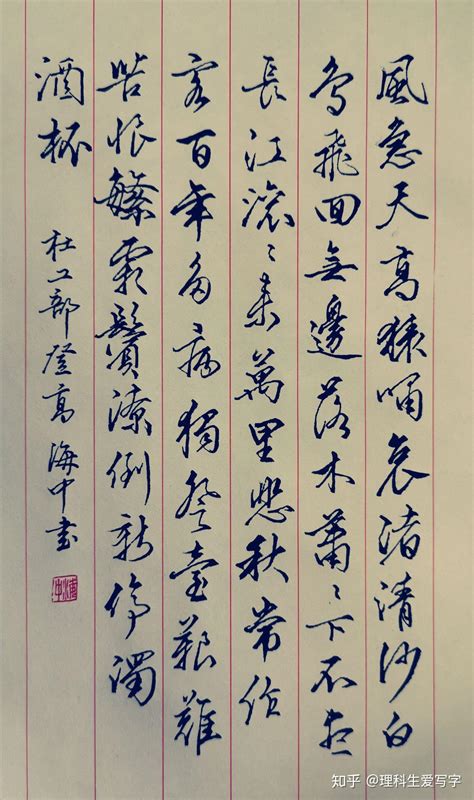 風急天高猿嘯哀渚清沙白
鳥飛回無邊落木蕭〻下不盡
長江滚〻来萬里悲秋常作
客百年多病獨登臺艱難
苦恨繁霜鬢潦倒新停濁
酒杯
杜工部登高海中書
知乎 @理科生爱写字